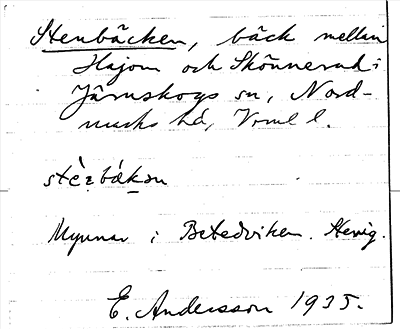 Stenbäcken, bäck mellan
Hajom och Skönnerud i
Järnskogs sn, Nord-
marks hd, Vrml l.
Mynnar i Betedviken.
E. Andersson 1935.